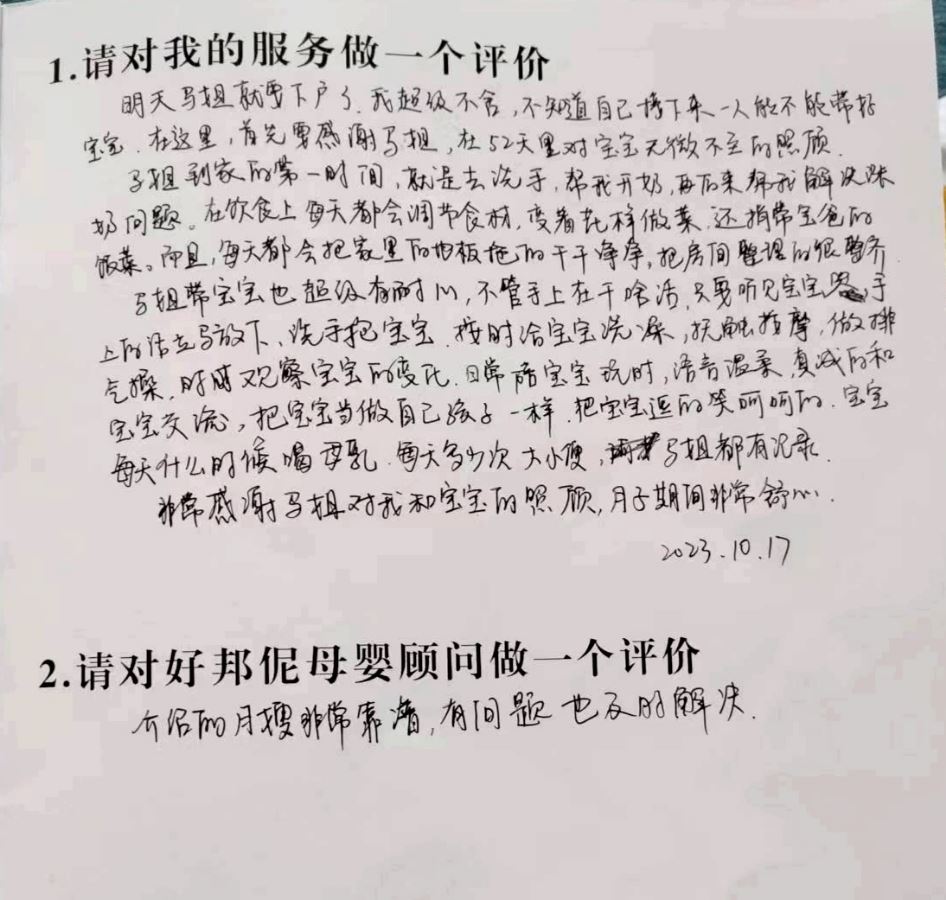 1.请对我的服务做一个评价
明天马姐就要下户了.我超级不舍,不知道自己接下来一人能不能带好
宝宝.在这里,首先要感谢马姐,在52天里对宝宝无微不至的照顾.
马姐到家的第一时间,就是去洗手,帮我开奶,再后来帮我解决涨
奶问题。在饮食上每天都会调节食材,变着花样做菜.还捎带宝爸的
饭菜。而且,每天都会把家里的地板拖的干干净净,把房间整理的很整齐.
马姐带宝宝也超级有耐心,不管手上在干啥活,只要听见宝宝哭手
上的活立马放下、洗手抱宝宝.按时给宝宝洗澡,抚触按摩,做排
气操.时时观察宝宝的变化.日常陪宝宝玩时,语音温柔,真诚的和
宝宝交流,把宝宝当做自己孩子一样.把宝宝逗的笑呵呵的.宝宝
每天什么时候喝母乳.每天多少次大小便,马姐都有记录.
非常感谢马姐对我和宝宝的照顾,月子期间非常舒心.
2023.10.17
2.请对好邦伲母婴顾问做一个评价
介绍的月嫂非常靠谱,有问题也及时解决.